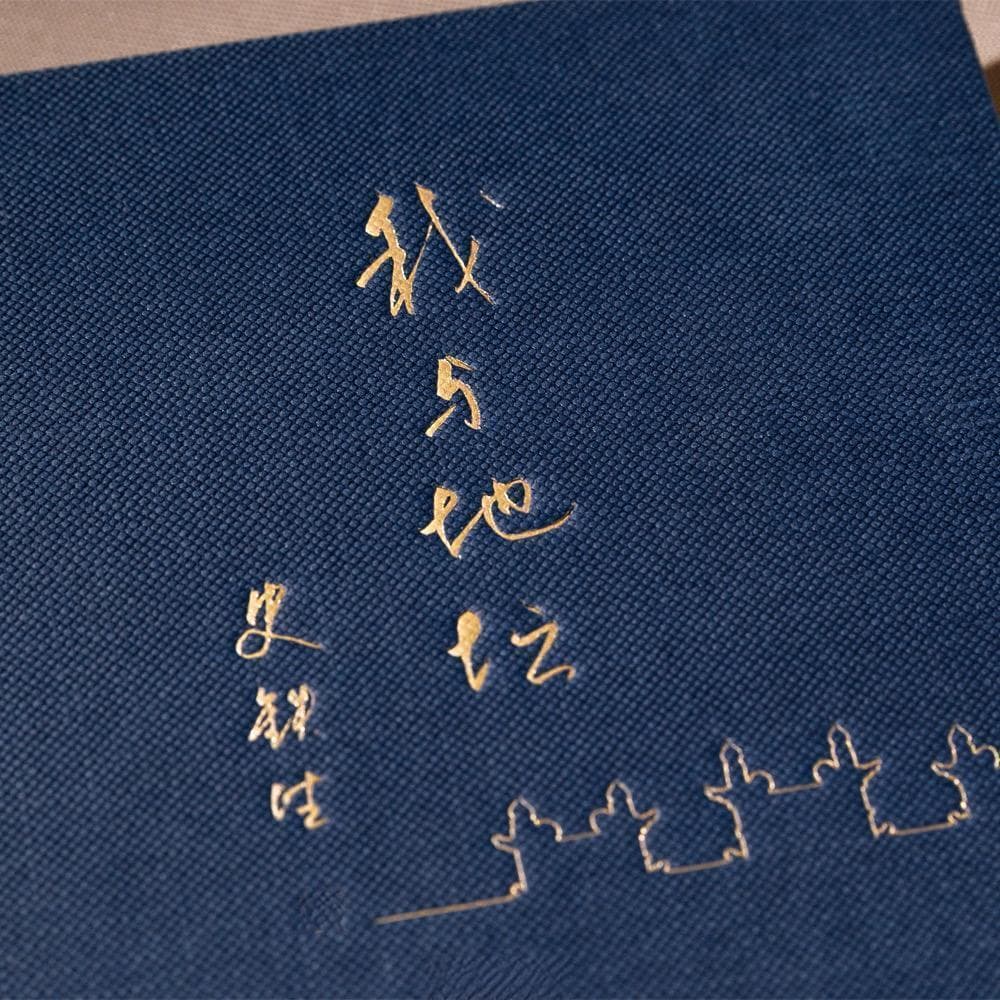 我与地坛
史铁生